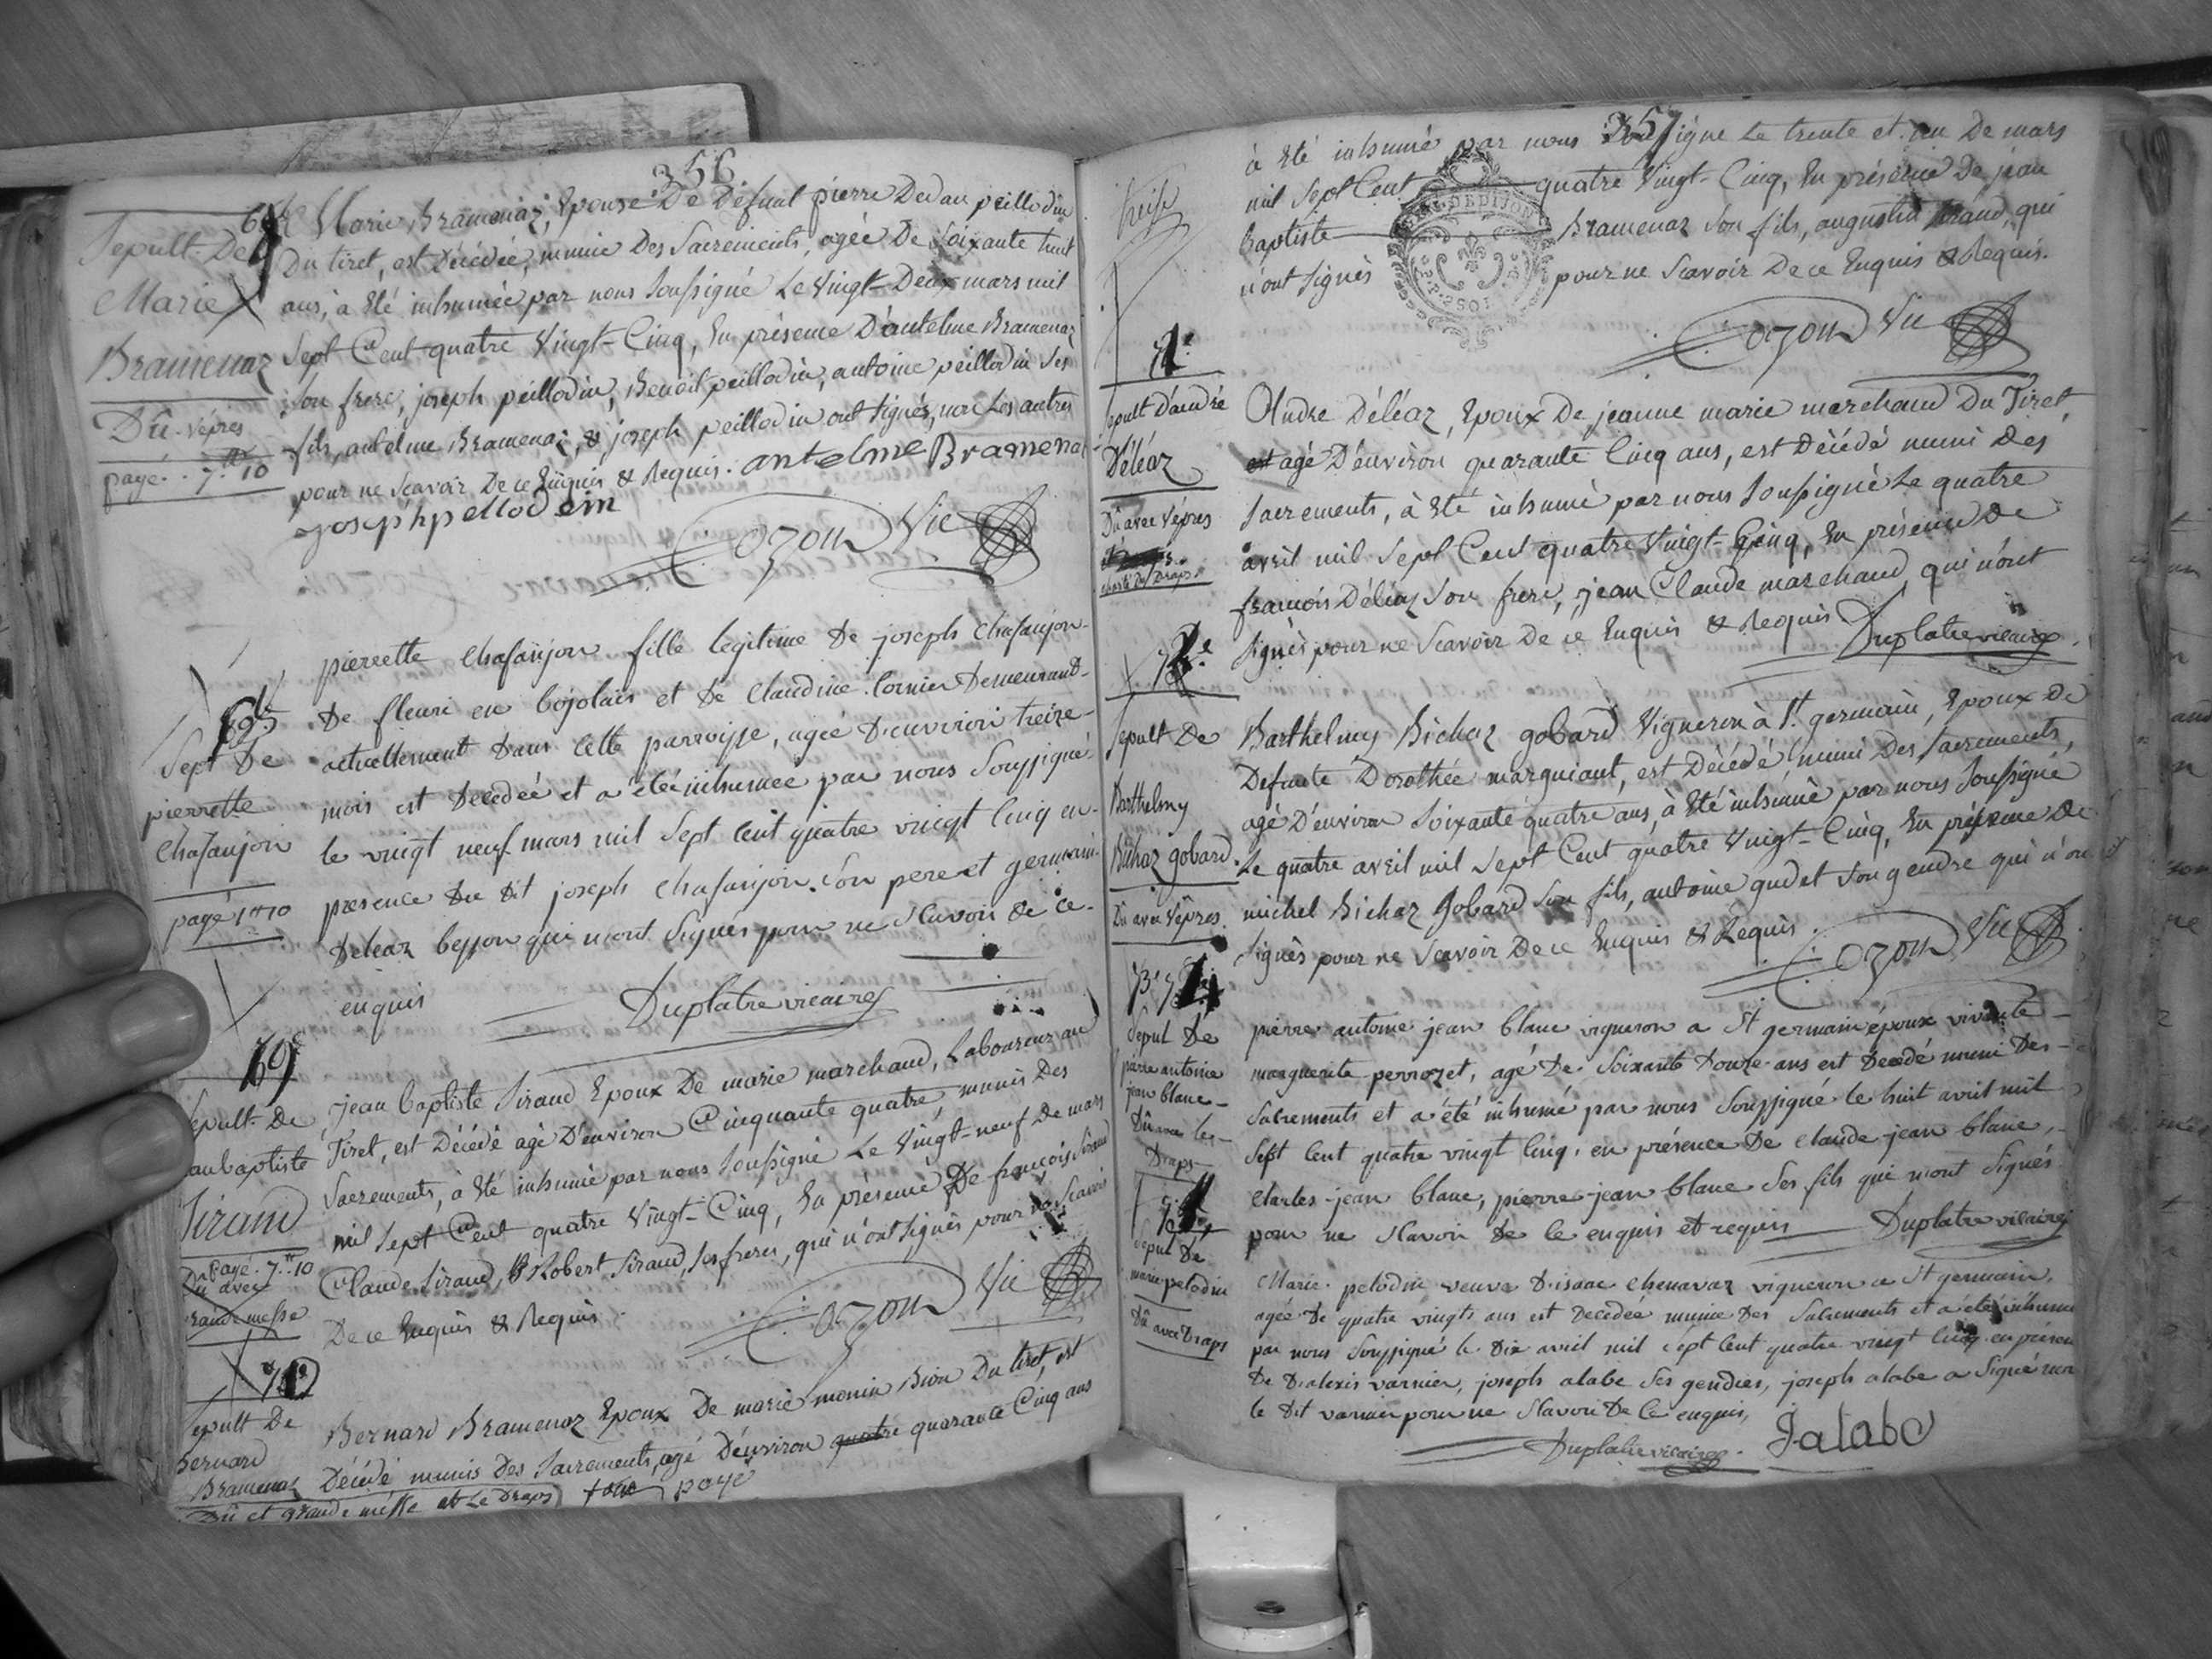 356.
Sepult. De
Marie
Bramenaz
Dû. vépres
payé. . 7.ᵗᵗ 10
Marie Bramenaz, Epouse De Defunt pierre Dedan peillodin
Du tiret, est Décédée, munie Des Sacrements, agée De Soixante huit
ans, à Eté inhumée par nous Soussigné Le Vingt-Deux mars mil
Sept Cent quatre Vingt-Cinq, En présence D'antelme Bramenaz
Son frere, joseph peillodin, Benoit peillodin, antoine peillodin Ses
fils, antelme Bramenaz, & joseph peillodin ont Signés, non Les autres
pour ne Scavoir De ce Enquis & Requis. antelme Bramenaz
joseph pellodein
Cozon Vic
Sept De
pierrette
Chafanjon
payé 1ᵗᵗ 10
pierrette Chafanjon fille legitime De joseph Chafanjon
De fleuri en bojolais et De Claudine Cornier Demeurant
actuellement Dans Cette parroisse, agée D'environ treize
mois est Decedée et a été inhumée par nous Soussigné
le vingt neuf mars mil Sept Cent quatre vingt Cinq en
presence Du Dit joseph Chafanjon Son pere et germain
Deleaz besson qui n'ont Signés pour ne Scavoir De Ce
enquis
Duplatre vicaire
69ᵉ
Sepult. De
jean baptiste
Siraud
Payé. 7.ᵗᵗ 10
Dû avec
Grande messe
jean baptiste Siraud Epoux De marie marchand, Laboureur au
Tiret, est Décédé agé D'environ Cinquante quatre, munis Des
Sacrements, à Eté inhumé par nous Soussigné Le Vingt-neuf De mars
mil Sept Cent quatre Vingt-Cinq, En présence De françois Siraud
Claude Siraud, & Robert Siraud, Ses freres, qui n'ont Signés pour ne Scavoir
De ce Enquis & Requis
Cozon Vic
70
Sepult De
Bernard
Bramenaz
Dû et grande messe et Le Draps payé
Bernard Bramenaz Epoux De marie monin Bion Du tiret, est
Décédé munis Des Sacrements, agé D'environ quatre quarante Cinq ans
357
à Eté inhumé par nous Soussigné Le trente et un De mars
mil Sept Cent quatre Vingt-Cinq, En présence De jean
Baptiste Bramenaz Son fils, augustin Siraud, qui
n'ont Signés pour ne Scavoir De ce Enquis & Requis.
Cozon Vic
Sepult D'andré
Déléaz
Dû avec Vépres
Andre Déléaz, Epoux De jeanne marie marchand Du Tiret,
est agé D'environ quarante Cinq ans, est Décédé muni Des
Sacrements, à Eté inhumé par nous Soussigné Le quatre
avril mil Sept Cent quatre Vingt-Cinq, En présence De
francois Déléaz Son frere, jean Claude marchand, qui n'ont
Signés pour ne Scavoir De ce Enquis & Requis
Duplatre vicaire
Sepult De
Barthelmy
Bichaz gobard.
Dû avec Vêpres
Barthelmy Bichaz gobard Vigneron à St. germain, Epoux De
Defunte Dorothée marguiant, est Décédé muni Des Sacrements,
agé D'environ Soixante quatre ans, à Eté inhumé par nous Soussigné
Le quatre avril mil Sept Cent quatre Vingt-Cinq, En présence De
michel Bichaz Gobard Son fils, antoine gudet Son gendre qui n'ont
Signés pour ne Scavoir De ce Enquis & Requis.
Cozon Vic
Sepul De
pierre antoine
jean blanc
Dû avec les
Draps
pierre antoine jean blanc vigneron a St germain époux vivante
marguerite perrozet, agé De Soixante Douze ans est Decedé muni Des
Sacrements et a été inhumé par nous Soussigné le huit avril mil
Sept Cent quatre vingt Cinq, en présence De Claude jean blanc,
Charles jean blanc, pierre jean blanc Ses fils qui n'ont Signés
pour ne Scavoir De Ce enquis et requis Duplatre vicaire
Sepul De
marie pelodin
Dû avec Draps
Marie pelodin veuve D'isaac Chenavaz vigneron a St germain,
agée De quatre vingts ans est Decedée munie Des Sacrements et a été inhumé
par nous Soussigné le Dix avril mil Sept Cent quatre vingt Cinq en présen
De D'alexis varnier, joseph alabe Ses gendres, joseph alabe a Signé non
le Dit varnier pour ne Scavoir De Ce enquis,
Duplatre vicaire. Jalabe